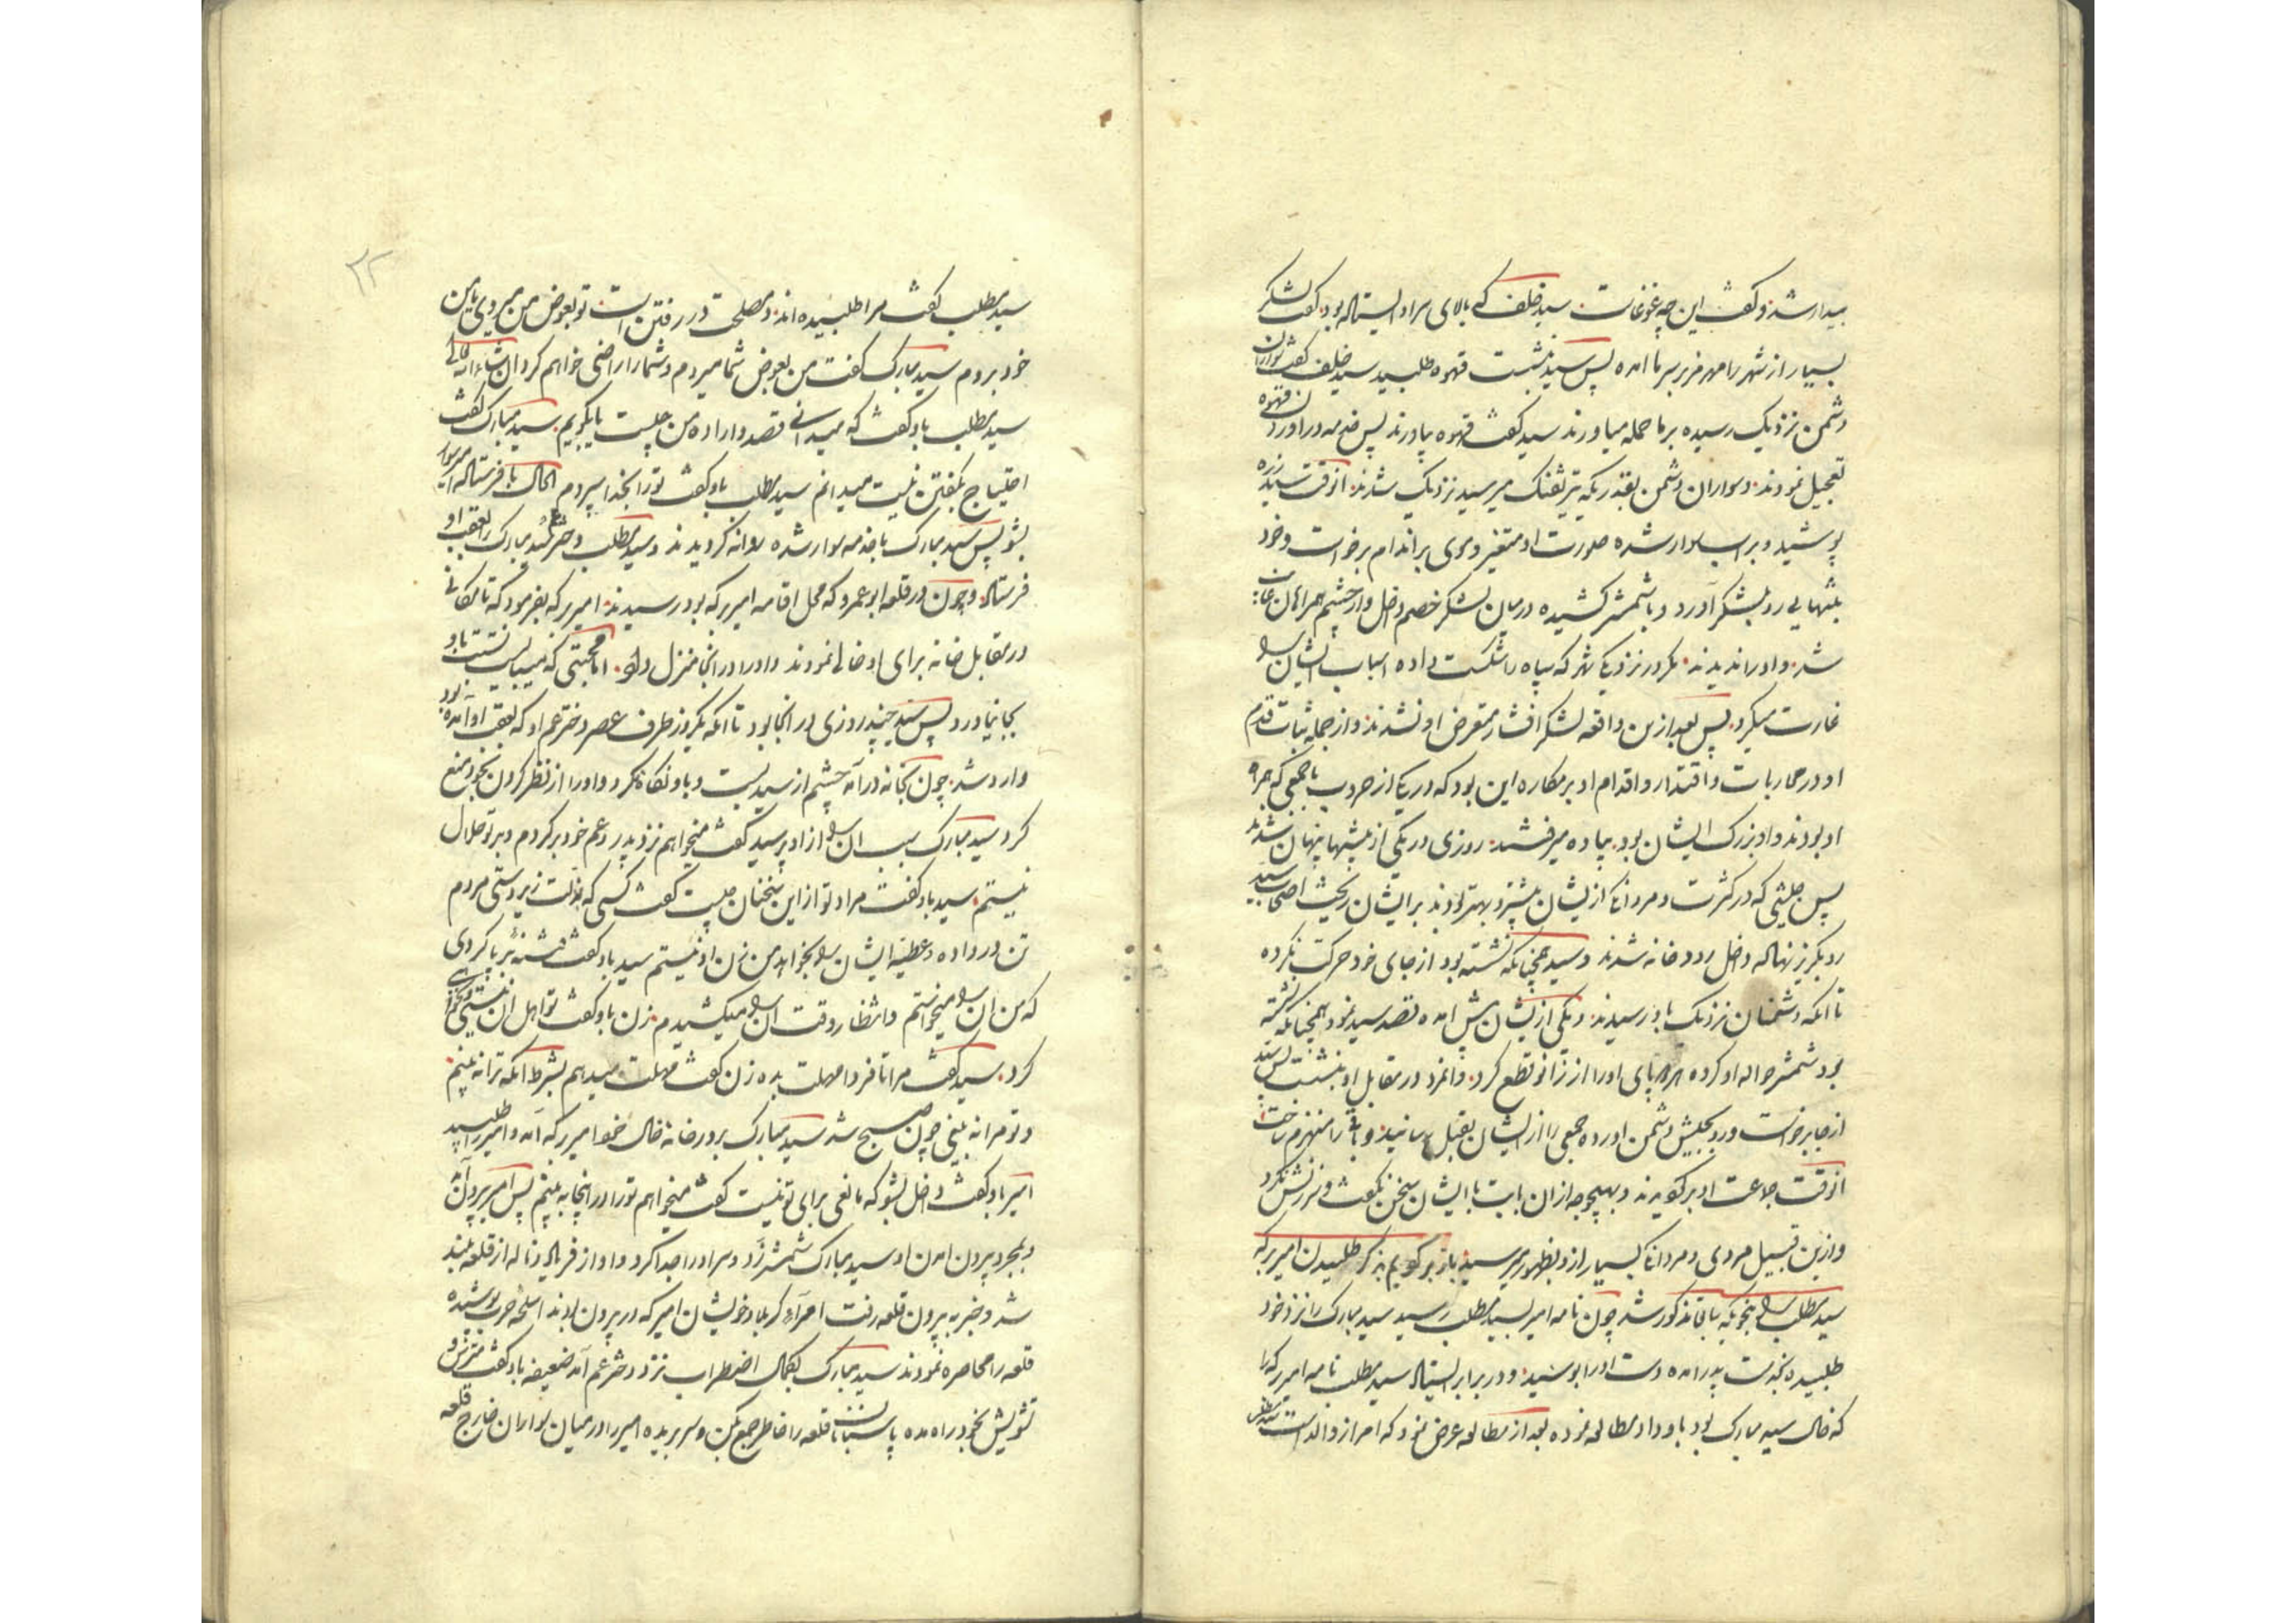 بیدار شد و گفت این چه غوغاست سید خلف که بالای سر او ایستاده بود گفت لشکر
بسیار از شهر رامهرمز بر سر ما آمده پس سید نشست قهوه طلبید سید خلف گفت سواران
دشمن نزدیک رسیده بر ما حمله میاورند سید گفت قهوه بیاورند پس خدمه در آوردن قهوه
تعجیل نمودند و سواران دشمن بقدریکه تیر تفنک میرسید نزدیک شدند آنوقت سید زره
پوشید و بر اسب سوار شده صورت او متغیر و موی بر اندام برخواست و خود
بتنهایی رو بلشکر آورد و با شمشیر کشیده درمیان لشکر خصم داخل و از چشم همراهان غایب
شد و او را ندیدند مکر در نزدیکی شهر که سپاه را شکست داده اسباب ایشان را
غارت میکرد پس بعد ازین واقعه لشکر افشار متعرض او نشدند و از جمله ثبات قدم
او در محاربات و اقتدار و اقدام او بر مکاره این بود که در یکی از حروب با جمعی که همراه
او بودند و او بزرک ایشان بود پیاده میرفتند روزی در یکی از بیشها پنهان شدند
پس جیشی که در کثرت و مردانکی از ایشان بیشتر و بهتر بودند بر ایشان ریخت اصحاب سید
رو بکریز نهاده داخل رودخانه شدند و سید همچنانکه نشسته بود از جای خود حرکت نکرده
تا آنکه دشمنان نزدیک باو رسیدند و یکی از ایشان پیش آمده قصد سید نمود همچنانکه نشسته
بود شمشیر حواله او کرده هر دو پای او را از زانو قطع کرد و آنمرد در مقابل او بنشست پس سید
از جا برخواست و رو بجیش دشمن آورده جمعی را از ایشان بقتل رسانید و باقی را منهزم ساخت
آنوقت جماعت او برکردیدند و بهیچوجه ازان بابت با ایشان سخن نکفت و سرزنش نکرد
و ازین قبیل مردی و مردانکی بسیار ازو بظهور میرسید باز برکردیم بذکر طلبیدن امیر برکه
سید مطلب را بنحویکه سابقا مذکور شد چون نامه امیر بسید مطلب رسید سید مبارک را نزد خود
طلبیده بخدمت پدر آمده دست او را بوسید و در برابر ایستاد سید مطلب نامه امیر برکه را
که خال سید مبارک بود باو داد مطالعه نموده بعد از مطالعه عرض نمود که امر از والد است سید مطلب
۲۲
سید مطلب گفت مرا طلبیده‌اند و مصلحت در رفتن است تو بعوض من میروی یا من
خود بروم سید مبارک گفت من بعوض شما میروم و شما را راضی خواهم کرد ان شاء الله تعالی
سید مطلب باو گفت که میدانی قصد و اراده من چیست یا بگویم سید مبارک گفت
احتیاج بگفتن نیست میدانم سید مطلب باو گفت تو را بخدا سپردم الحال با فرستاده امیر سوار
بشو پس سید مبارک با خدمه سوار شده روانه کردیدند و سید مطلب دختر عم سید مبارک را بعقب او
فرستاد و چون در قلعه ابو عمرو که محل اقامه امیر برکه بود رسیدند امیر برکه بفرمود که تا مکانی
در مقابل خانه برای او خالی نمودند و او را در آنجا منزل داد اما محبتی که میبایست نسبت باو
بجا نیاورد پس سید چند روزی در آنجا بود تا آنکه یکروز طرف عصر دختر عم او که بعقب او آمده بود
وارد شد چون بخانه درآمد چشم از سید بست و باو نکاه نکرد و او را از نظر کردن بخود منع
کرد سید مبارک سبب آن را از او پرسید گفت میخواهم نزد پدر و عم خود برکردم و بر تو حلال
نیستم سید باو گفت مراد تو از این سخنان چیست گفت کسی که بذلت زیردستی مردم
تن در داده و عطیه ایشان را بخواهد من زن او نیستم سید باو گفت فتنه بر پا کردی
که من آن را میخواستم و انتظار وقت آن را میکشیدم زن باو گفت تو اهل آن نیستی و نخواهی
کرد سید گفت مرا تا فردا مهلت بده زن گفت مهلت میدهم بشرط آنکه ترا نه بینم
و تو مرا نه بینی چون صبح شد سید مبارک بر در خانه خال خود امیر برکه آمد و امیر را طلبید
امیر باو گفت داخل بشو که مانعی برای تو نیست گفت میخواهم تو را در اینجا به بینم پس امیر بیرون آمد
و بمجرد بیرون آمدن او سید مبارک شمشیر زد و سر او را جدا کرد و آواز فریاد و ناله از قلعه بلند
شد و خبر به بیرون قلعه رفت امراء کربلا و خویشان امیر که در بیرون بودند اسلحه حرب پوشیده
قلعه را محاصره نمودند سید مبارک بکمال اضطراب نزد دختر عم آمد ضعیفه باو گفت مترس و
تشویش بخود راه مده پاسبانان قلعه را خاطر جمع کن و سر بریده امیر را در میان سواران خارج قلعه